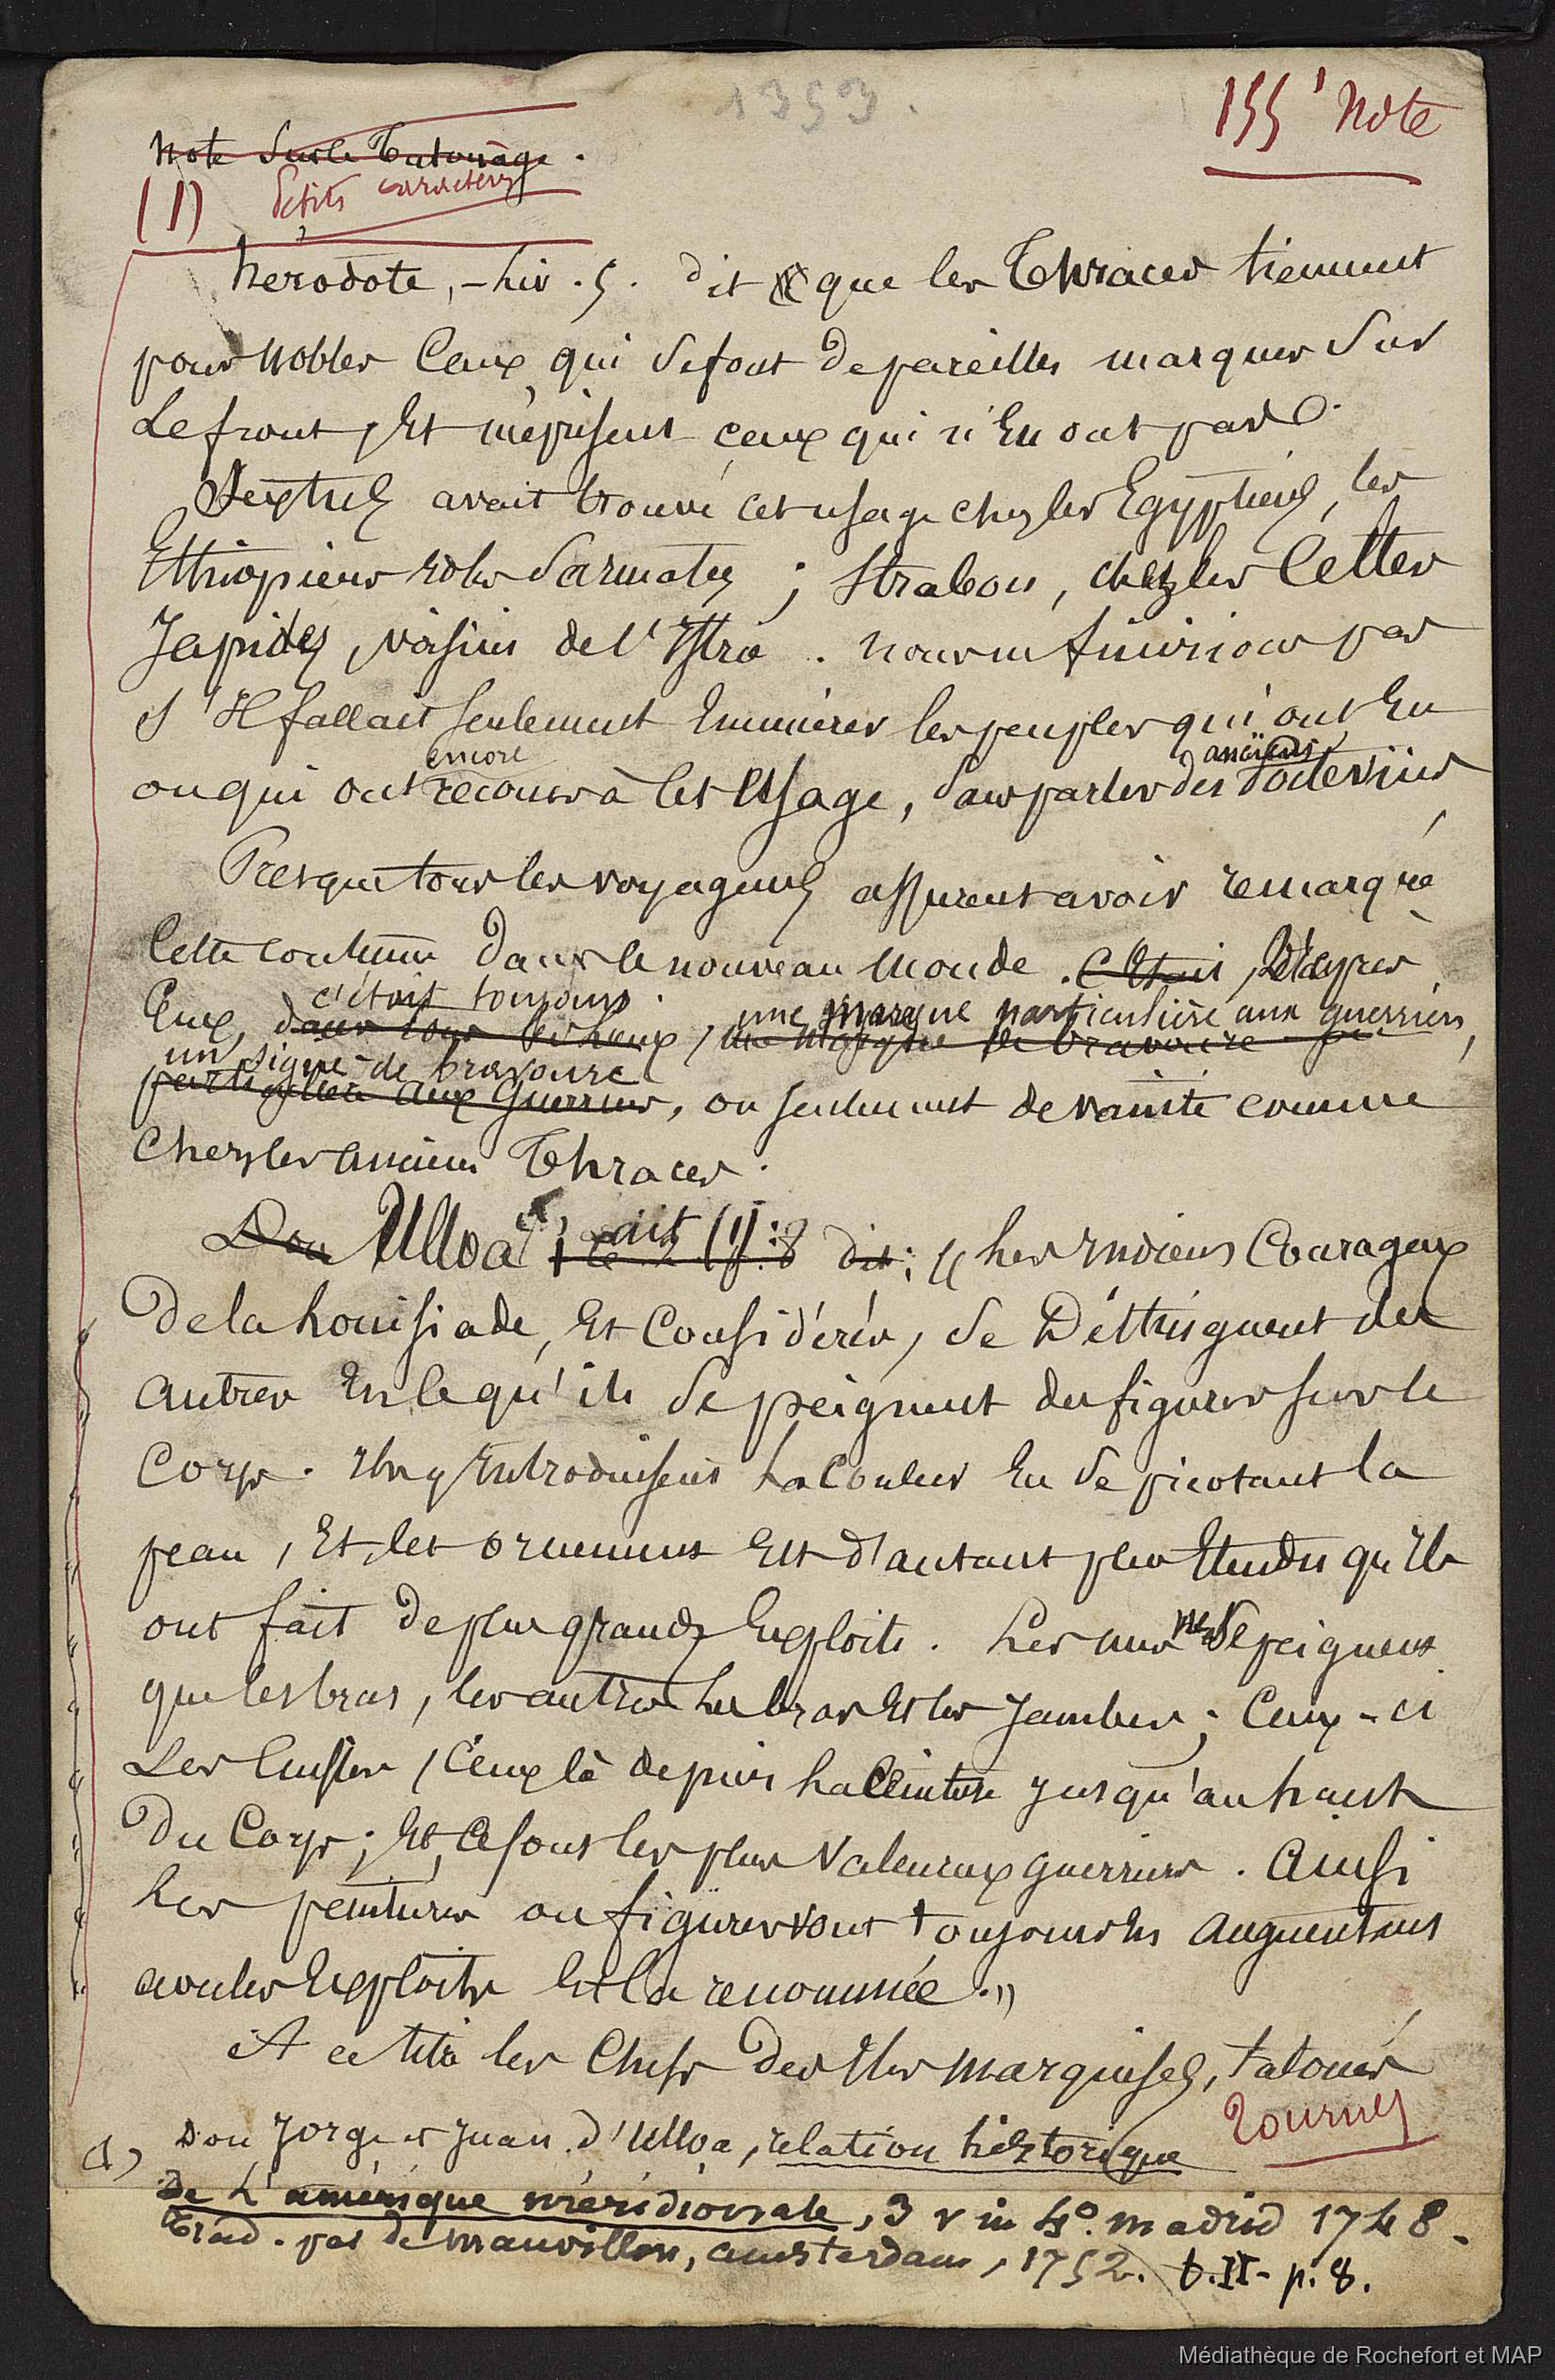 1353.
155' Note
Note sur le Tatouage.
(1) Petits caractères
hérodote, – Liv. 5. dit que les Thraces tiennent
pour nobles Ceux qui se font de pareilles marques sur
Le front, Et méprisent ceux qui n'En ont pas.
Sextus avait trouvé cet usage chez les Egyptiens, les
Ethiopiens et les Sarmates ; Strabon, chez les Celtes
Japides, voisins de l'Istrie. nous ne finirions pas
s'Il fallait seulement Enumérer les peuples qui ont Eu
encore anciens
ou qui ont recours à cet Usage, sans parler des
Presque tous les voyageurs assurent avoir remarqué
Cette coutume dans le nouveau monde. C'Etait, D'après
c'était toujours une marque particulière aux guerriers,
Eux, dans tous les lieux, une marque de bravoure
un signe de bravoure
particulière aux Guerriers, ou seulement de vanité comme
Chez les anciens Thraces.
Don Ulloa dit (1) : dit : « Les Indiens Courageux
De la Louisiade, Et Considérés, se Distinguent des
Autres En ce qu'ils se peignent des figures sur le
Corps. Ils y Introduisent La Couleur En se picotant la
peau, Et cet ornement Est d'autant plus Etendu qu'Ils
ont fait de plus grands Exploits. Les uns ne se peignent
que les bras, les autres Les bras Et les Jambes ; Ceux-ci
Les Cuisses, Ceux là depuis La Ceinture jusqu'au haut
Du Corps ; Et Ce sont les plus Valeureux guerriers. Ainsi
Les peintures ou figures vont toujours En Augmentant
avec les Exploits Et la renommée. »
A ce titre les Chefs Des Iles marquises, tatoués
Tournez
(1) Don Jorge et Juan d'Ulloa, relation historique
de L'amérique méridionale, 3 v in 4°. madrid 1748.
Trad. par de mauvillon, amsterdam, 1752. t. II - p. 8.
Médiathèque de Rochefort et MAP